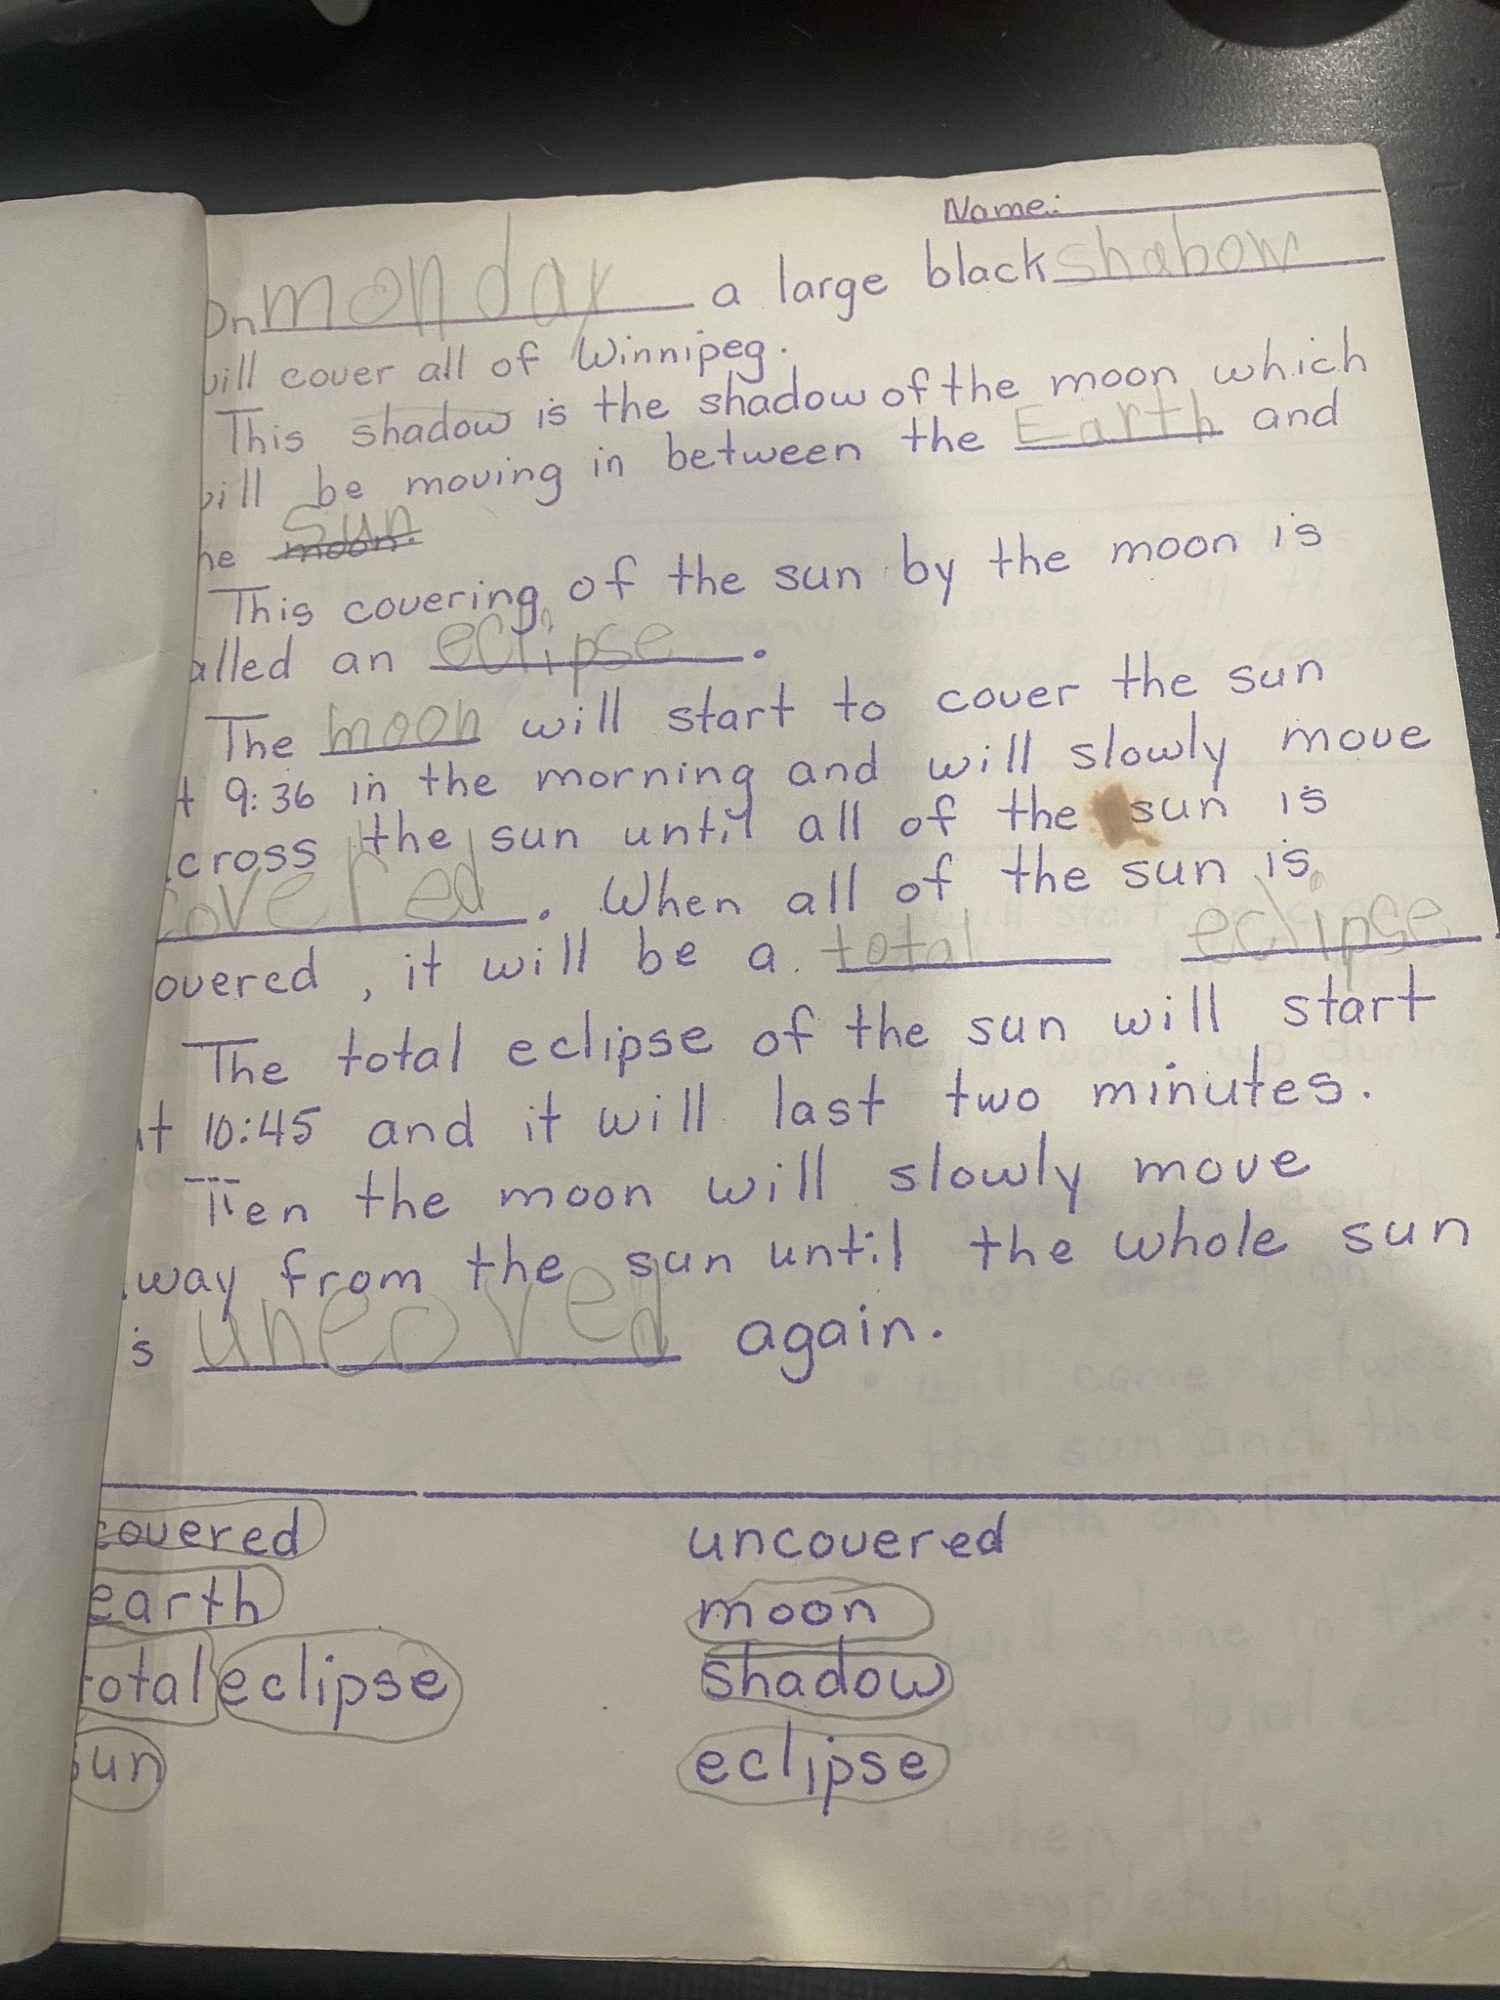 Name:
On monday a large black shabow
will cover all of Winnipeg.
This shadow is the shadow of the moon which
will be moving in between the Earth and
he sun moon.
This covering of the sun by the moon is
alled an eclipse.
The moon will start to cover the sun
t 9:36 in the morning and will slowly move
cross the sun until all of the sun is
covered. When all of the sun is
overed, it will be a total eclipse
The total eclipse of the sun will start
at 10:45 and it will last two minutes.
Then the moon will slowly move
way from the sun until the whole sun
s uncoved again.
covered uncovered
earth moon
total eclipse shadow
sun eclipse